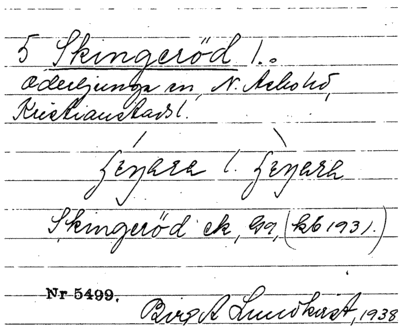 5 Skingeröd 1.
Oderljunga sn, N. Åsbo hd,
Kristianstads l.
Skingeröd ek, Gg, (kb 1931.)
Nr 5499.
Birgit Lundkvist, 1938